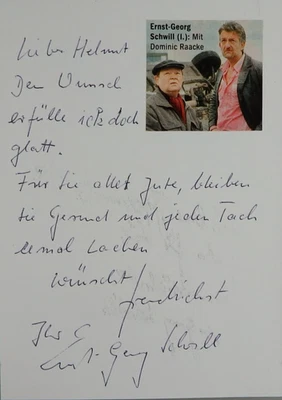 Ernst-Georg
Schwill (l.): Mit
Dominic Raacke
Lieber Helmut
Den Wunsch
erfülle ich doch
glatt.
Für Sie alles Gute, bleiben
Sie Gesund und jeden Tach
eemal Lachen
wünscht
freundlichst
Ihr
Ernst-Georg Schwill